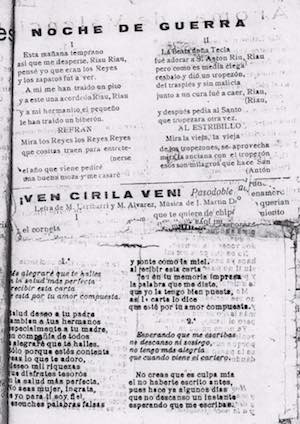 NOCHE DE GUERRA
I
Esta mañana temprano
asi que me desperté, Riau, Riau,
pensé yo que eran los Reyes
y los zapatos fuí a ver.
A mi me han traido un piso
y a este una acordeón Riau, Riau,
y a mi hermanito el pequeño
le han traido un biberón.
REFRAN
Mira los Reyes los Reyes Reyes
que cositas traen para entrete-
(nerse
el año que viene pediré
una buena moza y me casaré
II
La Beata deña Tecla
fué adorar a S. Antón Riu, Riau,
pero como es media ciega
resbaló y dió un tropezón,
del traspiés y sin malicia
junto a un cura fué a caer, Riau,
(Riau,
y después pedía al Santo
el tropezara otra vez.
AL ESTRIBILLO
Mira la vieja, la vieja
de los tropezones, se aprovecha
mira la anciana con el tropezón
esos son milagros que hace San
(Antón
¡VEN CIRILA VEN!
Pasodoble
Letra de M. y M. Alvarez, Música de J. Martín
que te quiero de
querían
el corneta
1.ª
Me alegraré que te halles
la salud más perfecta
recibir esta carta
está por tu amor compuesta.
Salud deseo a tu padre
también a tus hermanos
especialmente a tu madre,
en compañía de todos
alegraré que te halles.
Sólo porque estés contenta
eas lo que te adoro,
deseo mil riquezas
disfrutes tesoros
la salud más perfecta.
No seas mujer, ingrata,
e yo para tí soy fiel,
escuches palabras falsas
y ponte como la miel.
al recibir esta carta
de tu memoria impresa
la palabra que me diste,
que yo la tengo bien puesta,
asi la carta lo dice
que esté por tu amor compuesta.
2.ª
Esperando que me escribas
no descanso ni sosiego,
no tengo más alegria
que cuando viene el cartero.
No creas que es culpa mia
el no haberte escrito antes,
pues hace ya algunos dias
que no descanso un instante
esperando que me escribas.